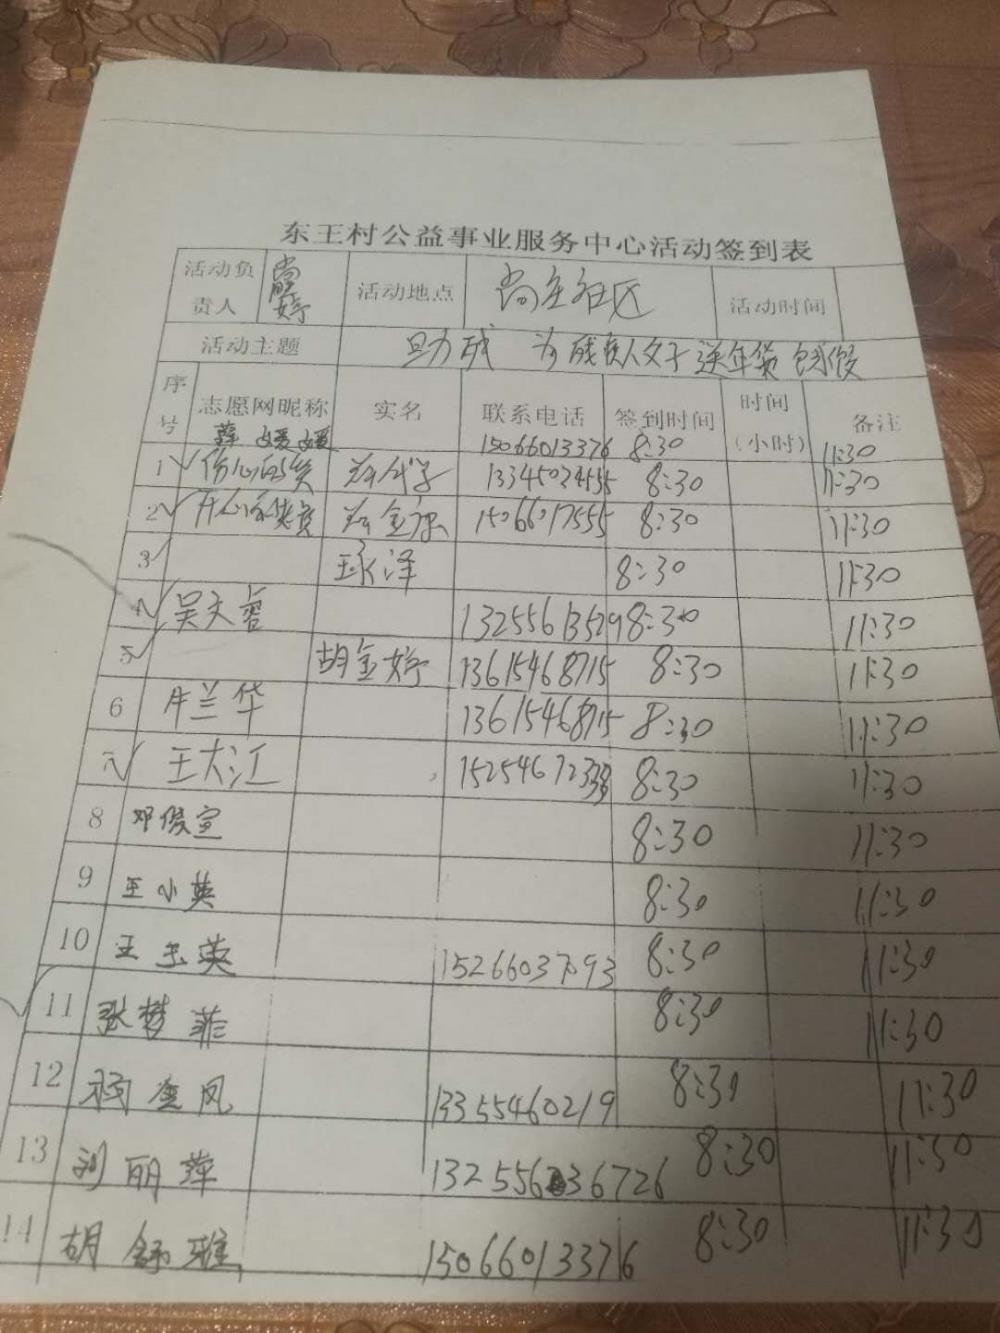 东王村公益事业服务中心活动签到表
活动负责人 活动地点 尚庄社区 活动时间
活动主题 助残 为残疾人父子送年货
序号 志愿网昵称 实名 联系电话 签到时间 时间(小时) 备注
萍 媛媛 15066013376 8:30 11:30
1 伤心的 13345034555 8:30 11:30
2 开心 15066017555 8:30 11:30
3 泽 8:30 11:30
4 吴天睿 13255613529 8:30 11:30
5 胡金婷 13615468715 8:30 11:30
6 牛兰华 13615468715 8:30 11:30
7 王大江 8:30 11:30
8 邓俊宣 8:30 11:30
9 王小英 8:30 11:30
10 王玉英 15266037093 8:30 11:30
11 张梦菲 8:30 11:30
12 凤 13355460219 8:30 11:30
13 刘丽萍 8:30 11:30
14 胡 雅 15066013376 8:30 11:30